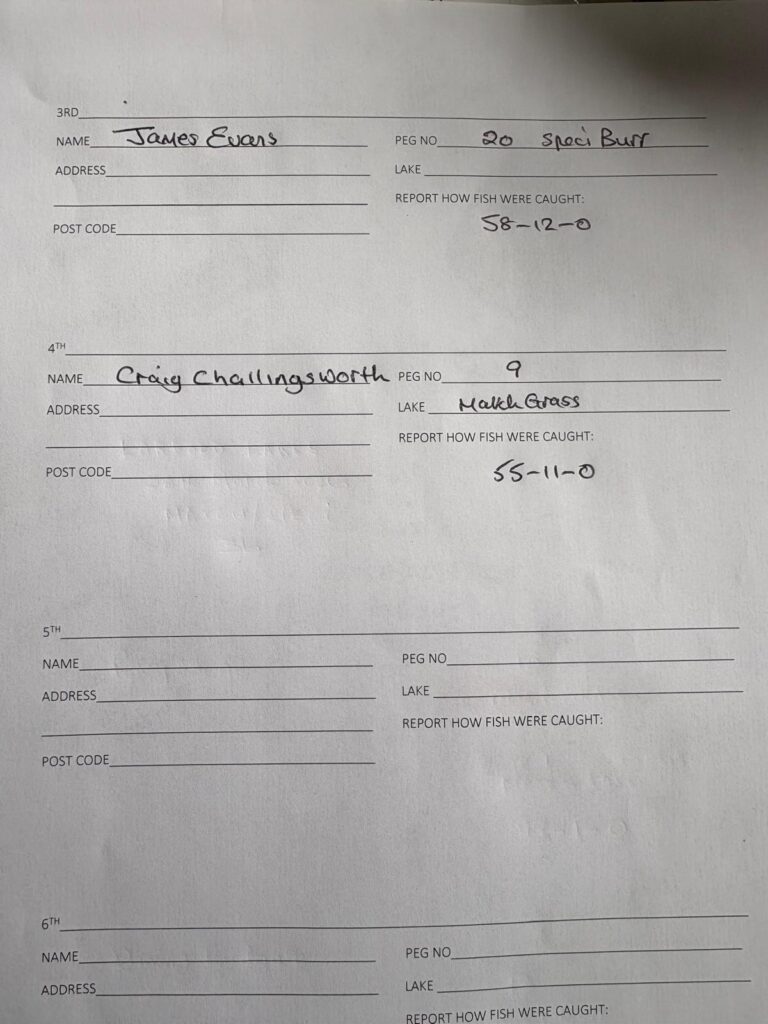 3RD
NAME James Evans PEG NO 20 Speci Burr
ADDRESS LAKE
REPORT HOW FISH WERE CAUGHT:
58-12-0
POST CODE
4TH
NAME Craig Challingsworth PEG NO 9
ADDRESS LAKE Match Grass
REPORT HOW FISH WERE CAUGHT:
55-11-0
POST CODE
5TH
NAME PEG NO
ADDRESS LAKE
REPORT HOW FISH WERE CAUGHT:
POST CODE
6TH
NAME PEG NO
ADDRESS LAKE
REPORT HOW FISH WERE CAUGHT: